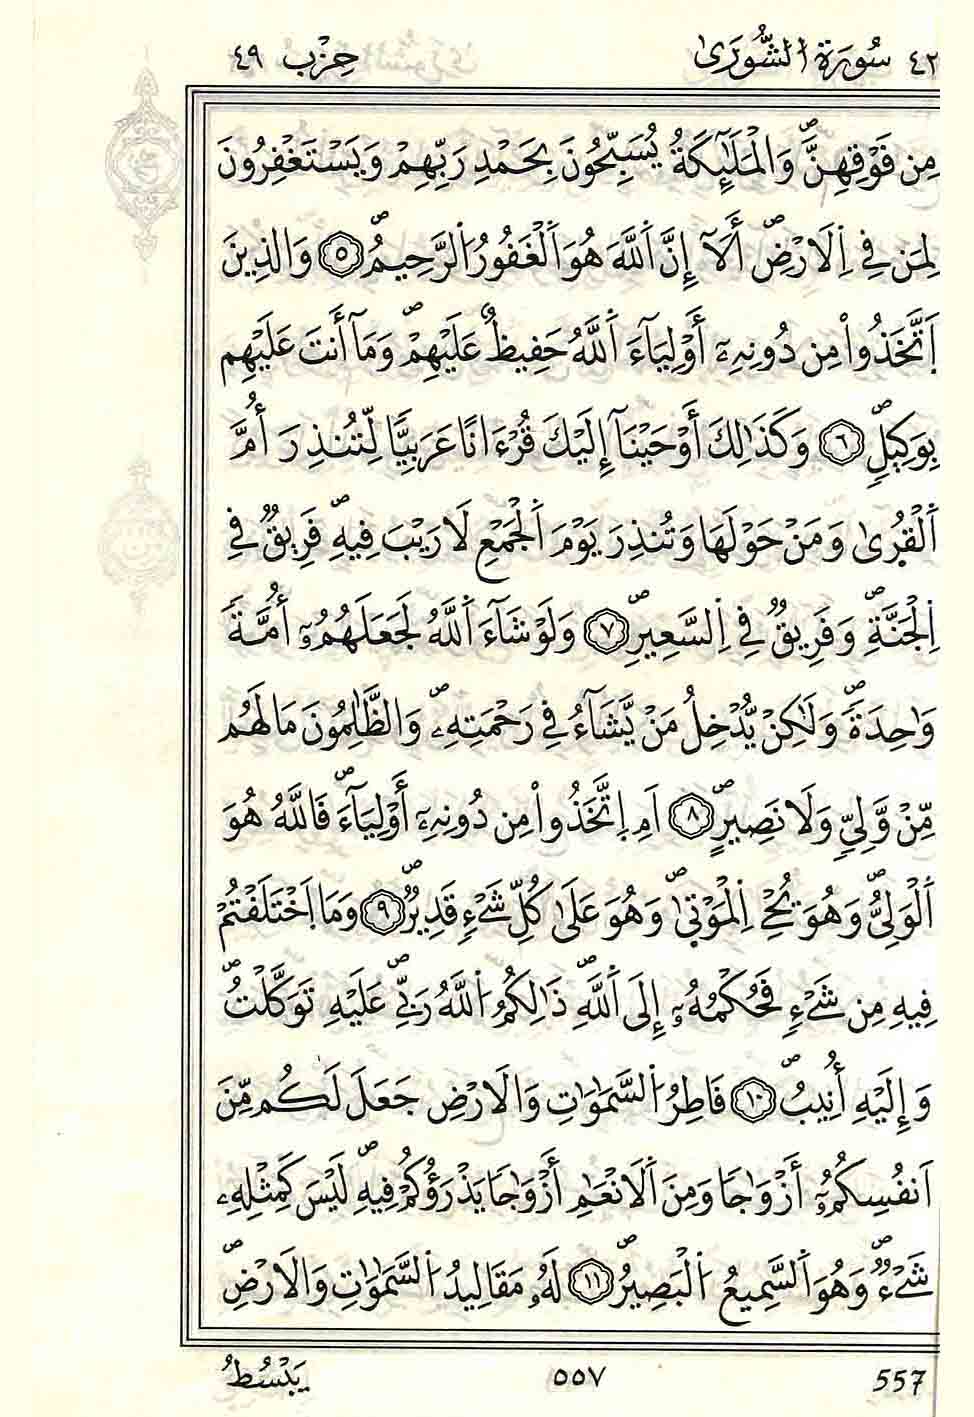 ٤٢ سُورَةُ الشُّورَىٰ حِزْب ٤٩
مِن فَوْقِهِنَّۖ وَالْمَلَٰٓئِكَةُ يُسَبِّحُونَ بِحَمْدِ رَبِّهِمْ وَيَسْتَغْفِرُونَ
لِمَن فِے اِ۬لَارْضِۖ أَلَآ إِنَّ اَ۬للَّهَ هُوَ اَ۬لْغَفُورُ اُ۬لرَّحِيمُۖ ٥ وَالذِينَ
اَ۪تَّخَذُواْ مِن دُونِهِۦٓ أَوْلِيَآءَ اَ۬للَّهُ حَفِيظٌ عَلَيْهِمْۖ وَمَآ أَنتَ عَلَيْهِم
بِوَكِيلٖۖ ٦ وَكَذَٰلِكَ أَوْحَيْنَآ إِلَيْكَ قُرْءَاناً عَرَبِيّاً لِّتُنذِرَ أُمَّ
اَ۬لْقُر۪ىٰ وَمَنْ حَوْلَهَا وَتُنذِرَ يَوْمَ اَ۬لْجَمْعِ لَا رَيْبَ فِيهِۖ فَرِيقٞ فِے
اِ۬لْجَنَّةِۖ وَفَرِيقٞ فِے اِ۬لسَّعِيرِۖ ٧ وَلَوْ شَآءَ اَ۬للَّهُ لَجَعَلَهُمُۥٓ أُمَّةٗ
وَٰحِدَةٗۖ وَلَٰكِنْ يُّدْخِلُ مَنْ يَّشَآءُ فِے رَحْمَتِهِۦۖ وَالظَّٰلِمُونَ مَا لَهُم
مِّنْ وَّلِيّٖ وَلَا نَصِيرٍۖ ٨ اَمِ اِ۪تَّخَذُواْ مِن دُونِهِۦٓ أَوْلِيَآءَۖ فَاللَّهُ هُوَ
اَ۬لْوَلِيُّۖ وَهُوَ يُحْيِ اِ۬لْمَوْت۪ىٰۖ وَهُوَ عَلَىٰ كُلِّ شَےْءٖ قَدِيرٞۖ ٩ وَمَا اَ۪خْتَلَفْتُمْ
فِيهِ مِن شَےْءٖ فَحُكْمُهُۥٓ إِلَى اَ۬للَّهِۖ ذَٰلِكُمُ اُ۬للَّهُ رَبِّےۖ عَلَيْهِ تَوَكَّلْتُۖ
وَإِلَيْهِ أُنِيبُۖ ١٠ فَاطِرُ اُ۬لسَّمَٰوَٰتِ وَالَارْضِ جَعَلَ لَكُم مِّنَ
اَنفُسِكُمُۥٓ أَزْوَٰجاً وَمِنَ اَ۬لَانْعَٰمِ أَزْوَٰجاً يَذْرَؤُكُمْ فِيهِۖ لَيْسَ كَمِثْلِهِۦ
شَےْءٞۖ وَهُوَ اَ۬لسَّمِيعُ اُ۬لْبَصِيرُۖ ١١ لَهُۥ مَقَالِيدُ اُ۬لسَّمَٰوَٰتِ وَالَارْضِۖ
557 ٥٥٧ يَبْسُطُ